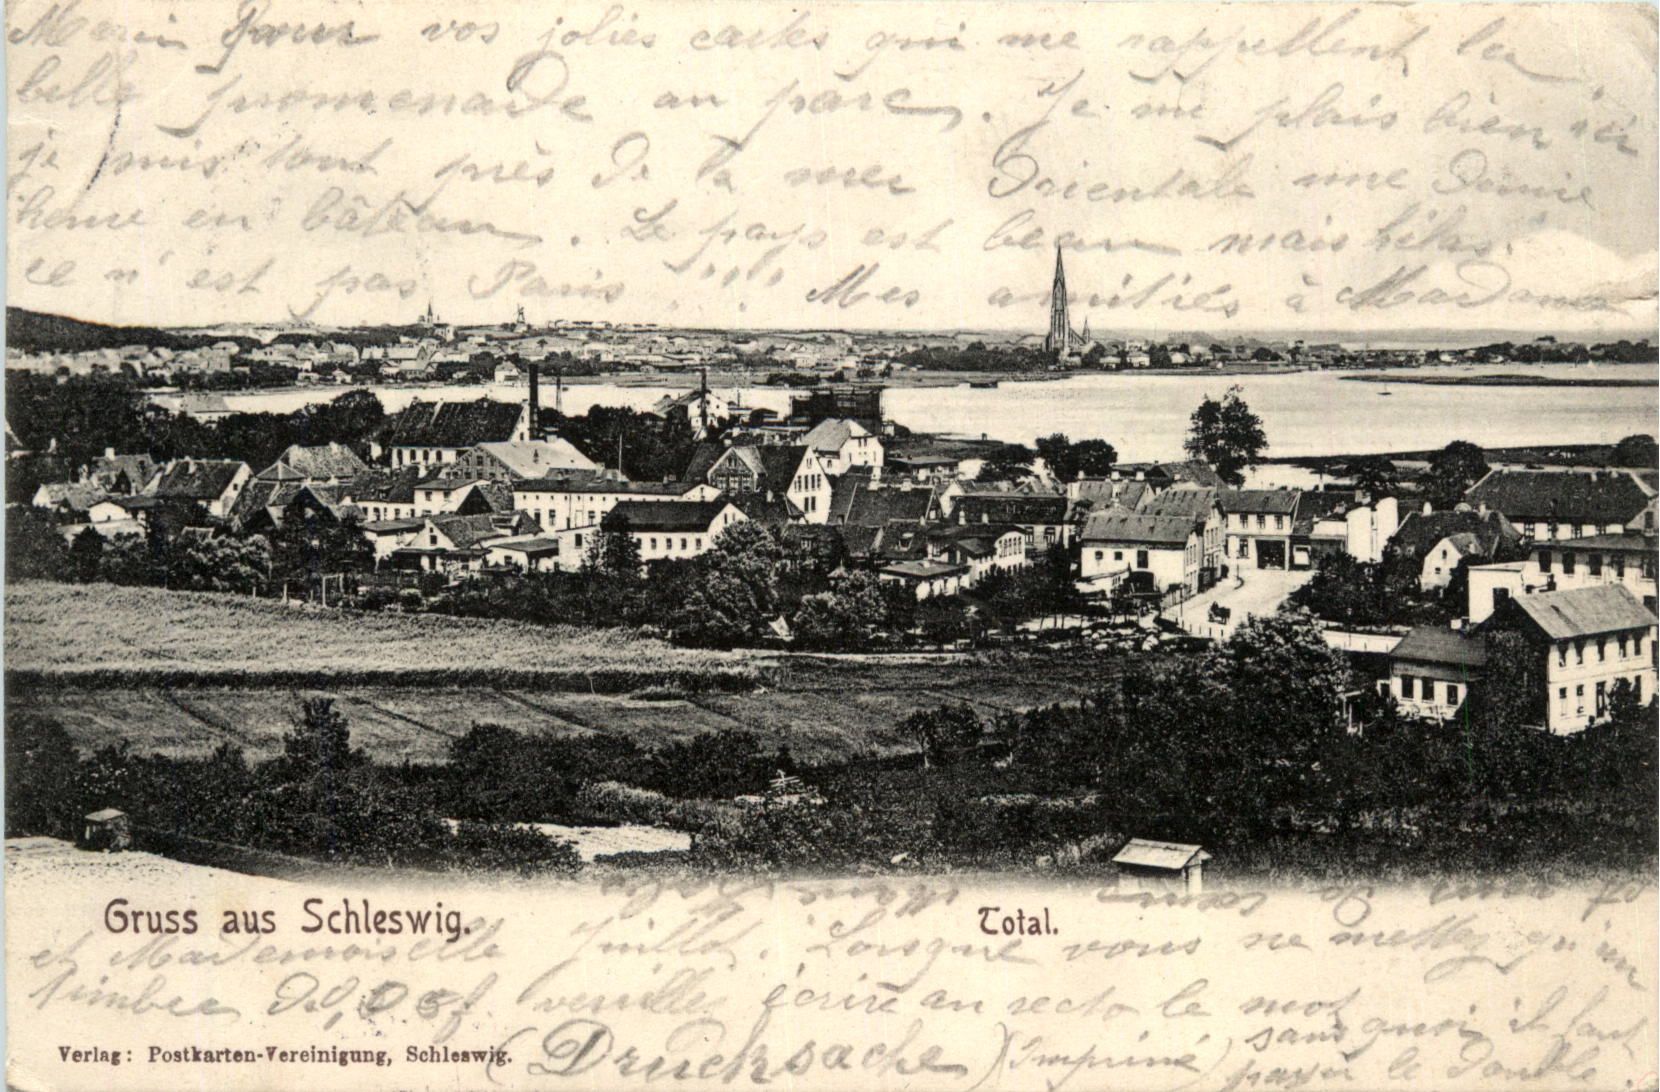 Merci pour vos jolies cartes qui me rappellent la
belle promenade au parc. Je me plais bien ici
je suis tout près de la mer Orientale une demie
heure en bâteau. Le pays est beau mais hélas!
ce n'est pas Paris!!! Mes amitiés à Madame
Gruss aus Schleswig.
Total.
et Mademoiselle Juillet. Lorsque vous ne mettez qu'un
timbre de 0,05f. veuillez écrire au recto le mot
(Drucksache) (imprimé) sans quoi il faut
payer le double
Verlag: Postkarten-Vereinigung, Schleswig.